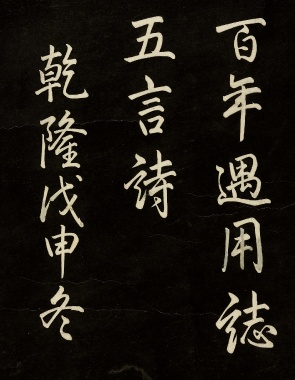 百年遇用誌
五言詩
乾隆戊申冬